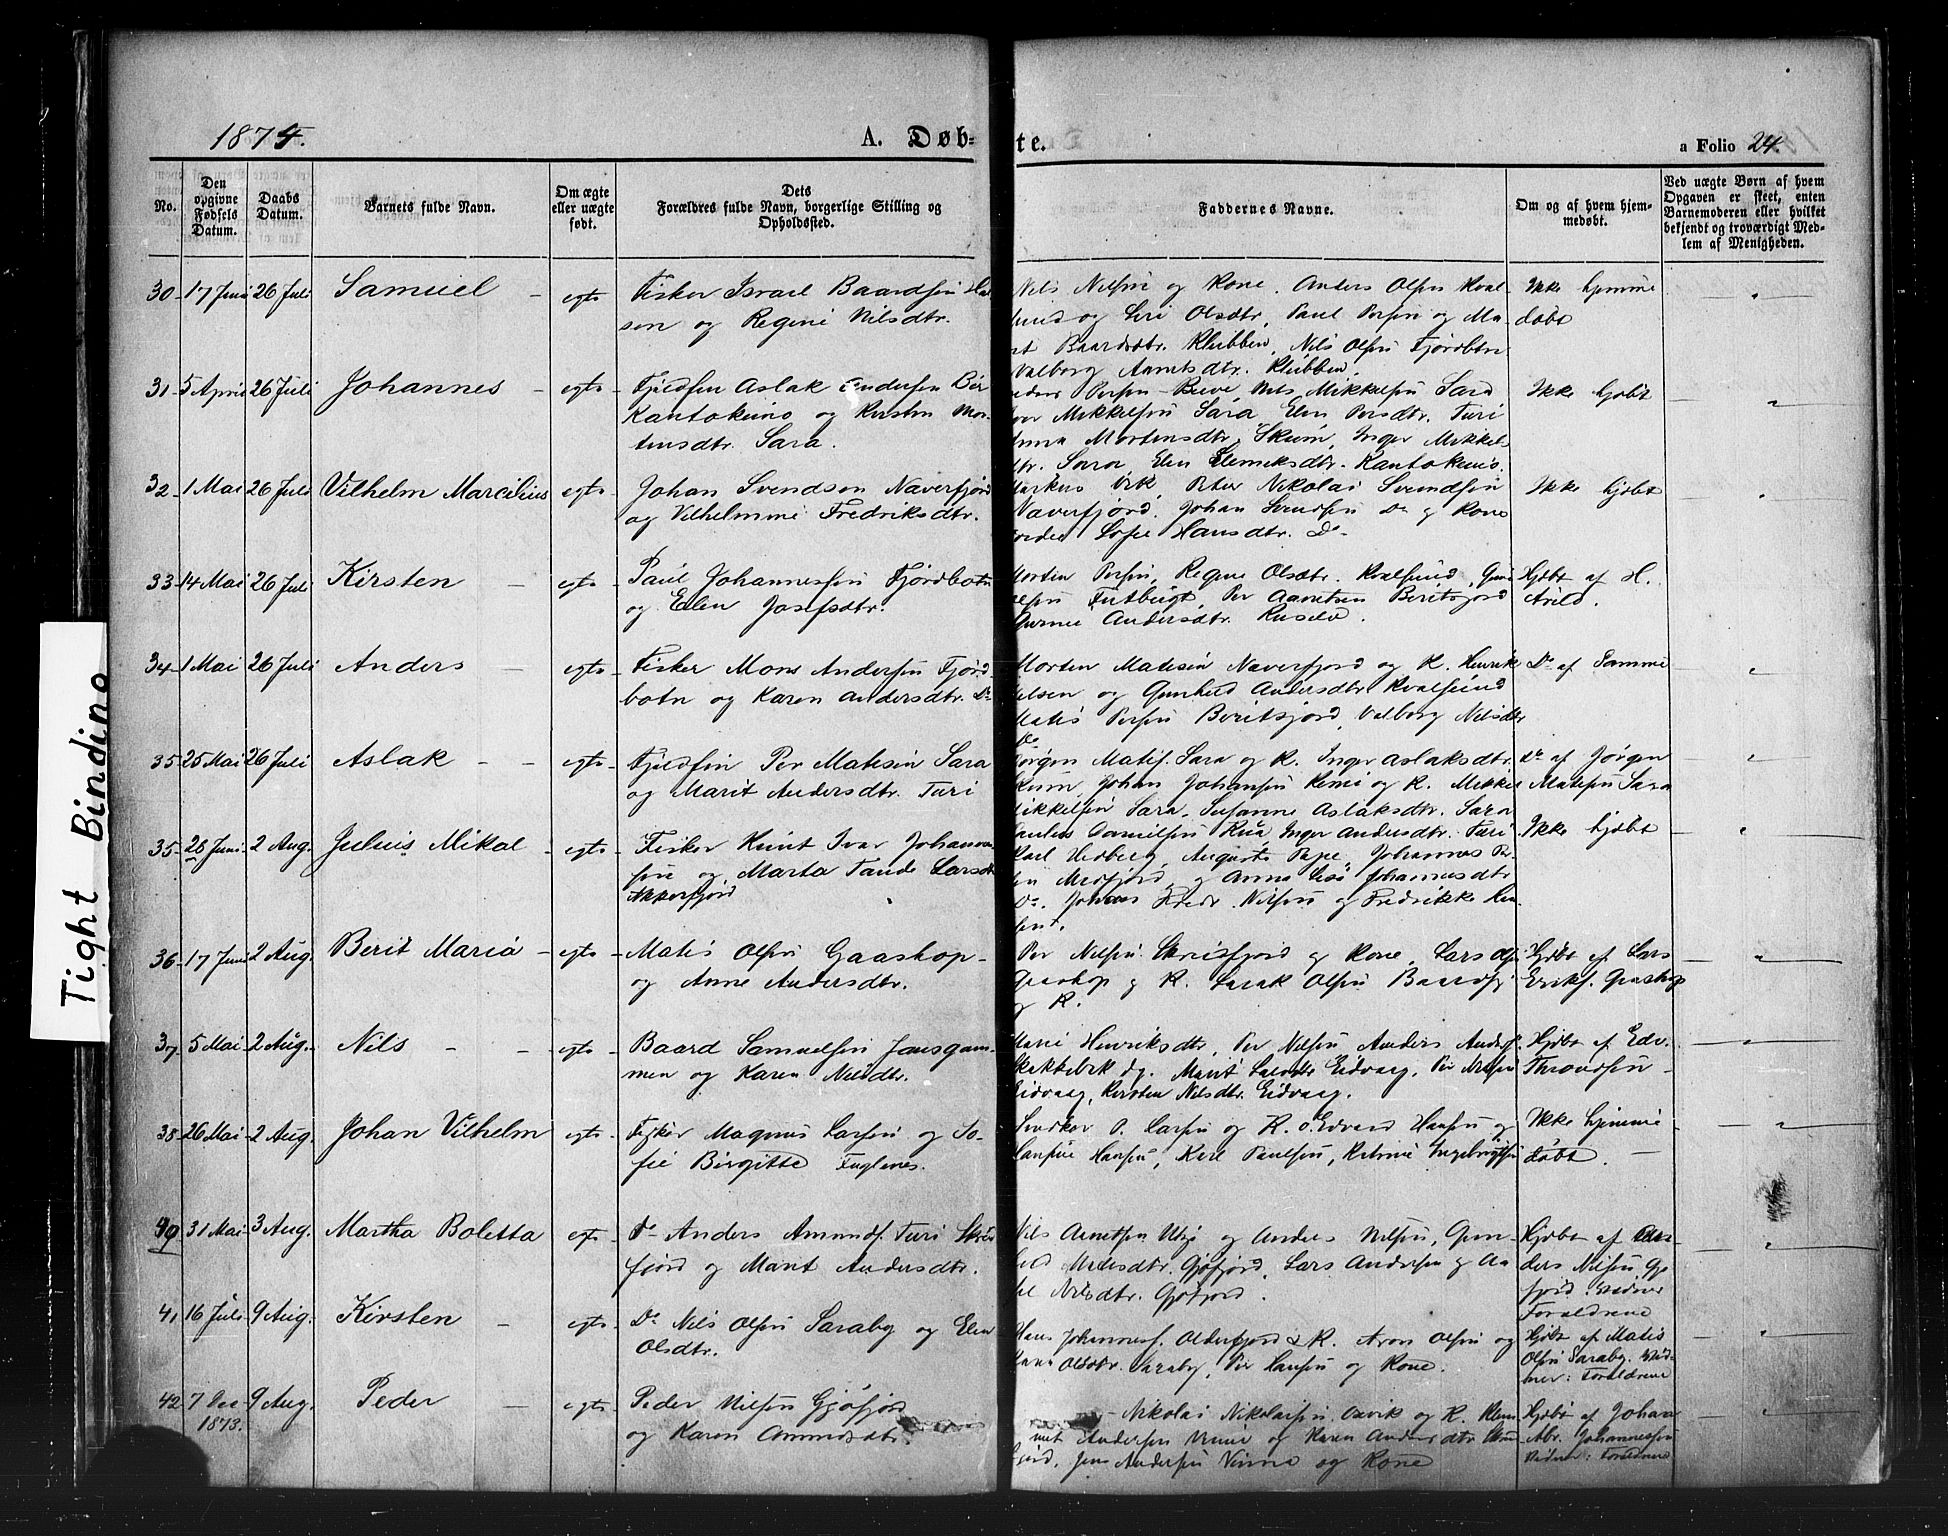 1874.
A. Døb-
te.
a Folio 24.
No.
Den opgivne Fødsels Datum.
Daabs Datum.
Barnets fulde Navn.
Om ægte eller uægte født.
Dets Forældres fulde Navn, borgerlige Stilling og Opholdssted.
Faddernes Navne.
Om og af hvem hjemmedøbt.
Ved uægte Børn af hvem Opgaven er skeet, enten Barnemoderen eller hvilket bekjendt og troværdigt Medlem af Menigheden.
30 17 Juni 26 Juli Samuel - egte Fisker Israel Baardsen
sen og Regine Nilsdtr.
Nils Nilsen og Kone. Anders Olsen Kval-
sund og Siri Olsdtr, Paul Persen og Ma-
rit Baardsdtr. Klubben, Nils Olsen Fjordbtn
Valborg Amitsdtr. Klubben.
Ikke hjemme
døbt
31 5 April 26 Juli Johannes - egte Fjeldfin Aslak Andersen
Kautokeino og Kirsten Mor-
tensdtr. Sara.
Persen Beve, Nils Mikkelsen Sara
Mikkelsen Sara, Elen Persdtr. Turi
Anna Mortensdtr. Skum, Inger Mikkels
dtr. Sara, Elen Klemetsdtr. Kautokeino.
Ikke hjdbt
32 1 Mai 26 Juli Vilhelm Marcilius egte Johan Svendsen Naverfjord
og Vilhelmine Fredriksdtr.
Markus Erk, Peter Nikolai Svendsen
Naverfjord, Johan Svendsen Do og Kone
Sofie Hansdtr. Do
Ikke hjdbt
33 14 Mai 26 Juli Kirsten - egte Paul Johannessen Fjordbotn
og Elen Josefsdtr.
Morten Persen, Regine Olsdtr. Kvalsund,
Per Aanetsen Beritsfjord
Andersdtr. Ruselv.
Hjdbt af H.
Arild.
34 1 Mai 26 Juli Anders - egte Fisker Mons Andersen Fjord
botn og Karen Andersdtr. Do
Morten Matisen Naverfjord og K. Henrik
Nilsen og Gunhild Andersdtr Kvalsund
Matis Persen Beritsfjord, Valborg Nilsdtr
Do
Do af Samme
35 25 Mai 26 Juli Aslak - - egte Fjeldfin Per Matisen Sara
og Marit Andersdtr. Turi
Jørgen Matis. Sara og K. Inger Aslaksdtr.
Skum, Johan Johansen Kemi og K. Mikkel
Mikkelsen Sara, Susanne Aslaksdtr. Sara
Do af Jørgen
Matisen Sara
35 28 Juni 2 Aug. Julius Mikal - egte Fisker Knut Ivar Johannes
sen og Marta Tande Larsdtr
Akkarfjord
Danielsen Inger Andersdtr. Turi
Karl Hedberg, Augusta Pape, Johannes
Medfjord, og Anna Lise Johannesdtr
Do. Johan Fredr. Nilsen og Fredrikke
Ikke hjdbt
36 17 Juni 2 Aug. Berit Maria - egte Matis Olsen Gaashop -
og Anne Andersdtr.
Per Nilsen Skreifjord og Kone, Lars
Gaashop og K. Isak Olsen
og K.
Hjdbt af Lars
Eriks. Gaashop
37 5 Mai 2 Aug. Nils - - egte Baard Samuelsen Jansgam-
men og Karen Nilsdtr.
Marie Henriksdtr, Per Nilsen Anders Anders.
Do. Marit Larsdtr Eidvaag, Per Nilsen
Eidvaag, Kirsten Nilsdtr. Eidvaag.
Hjdbt af Edv.
Throndsen -
38 26 Mai 2 Aug. Johan Vilhelm egte Fisker Magnus Larsen og So-
fie Birgitte Fuglenes.
Snedker O. Larsen og K. Edvard Hansen og
Hansine Hansen, Karl Paulsen, Katrine Ingebrigtsen
Ikke hjemme
døbt. -
40 31 Mai 3 Aug. Martha Boletta egte Do Anders Amunds. Turi Skrei
fjord og Marit Andersdtr.
Nils Arnetsen og Anders Nilsen, Gun-
hild Matisdtr. Gjøfjord, Lars Andersen og
Nilsdtr. Gjøfjord.
Hjdbt af An-
ders Nilsen Gjø
fjord. Vidner
Forældrene
41 16 Juli 9 Aug. Kirsten - egte Do Nils Olsen Saraby og Elen
Olsdtr.
Hans Johanness. Olderfjord & K. Aron Olsen og
Olsdtr. Saraby, Per Hansen og Kone.
Hjdbt af Matis
Olsen Saraby. Vid-
ner: Forældrene
42 7 Dec 9 Aug. Peder - egte Peder Nilsen Gjøfjord
1873.
og Karen Amundsdtr.
Nikolai Nikolaisen og K. Klem
met Andersen og Karen Andersdtr
fjord, Jens Andersen og Kone
Hjdbt af Johan
Abr. Johannessen
Vidner: Forældrene
Tight Binding